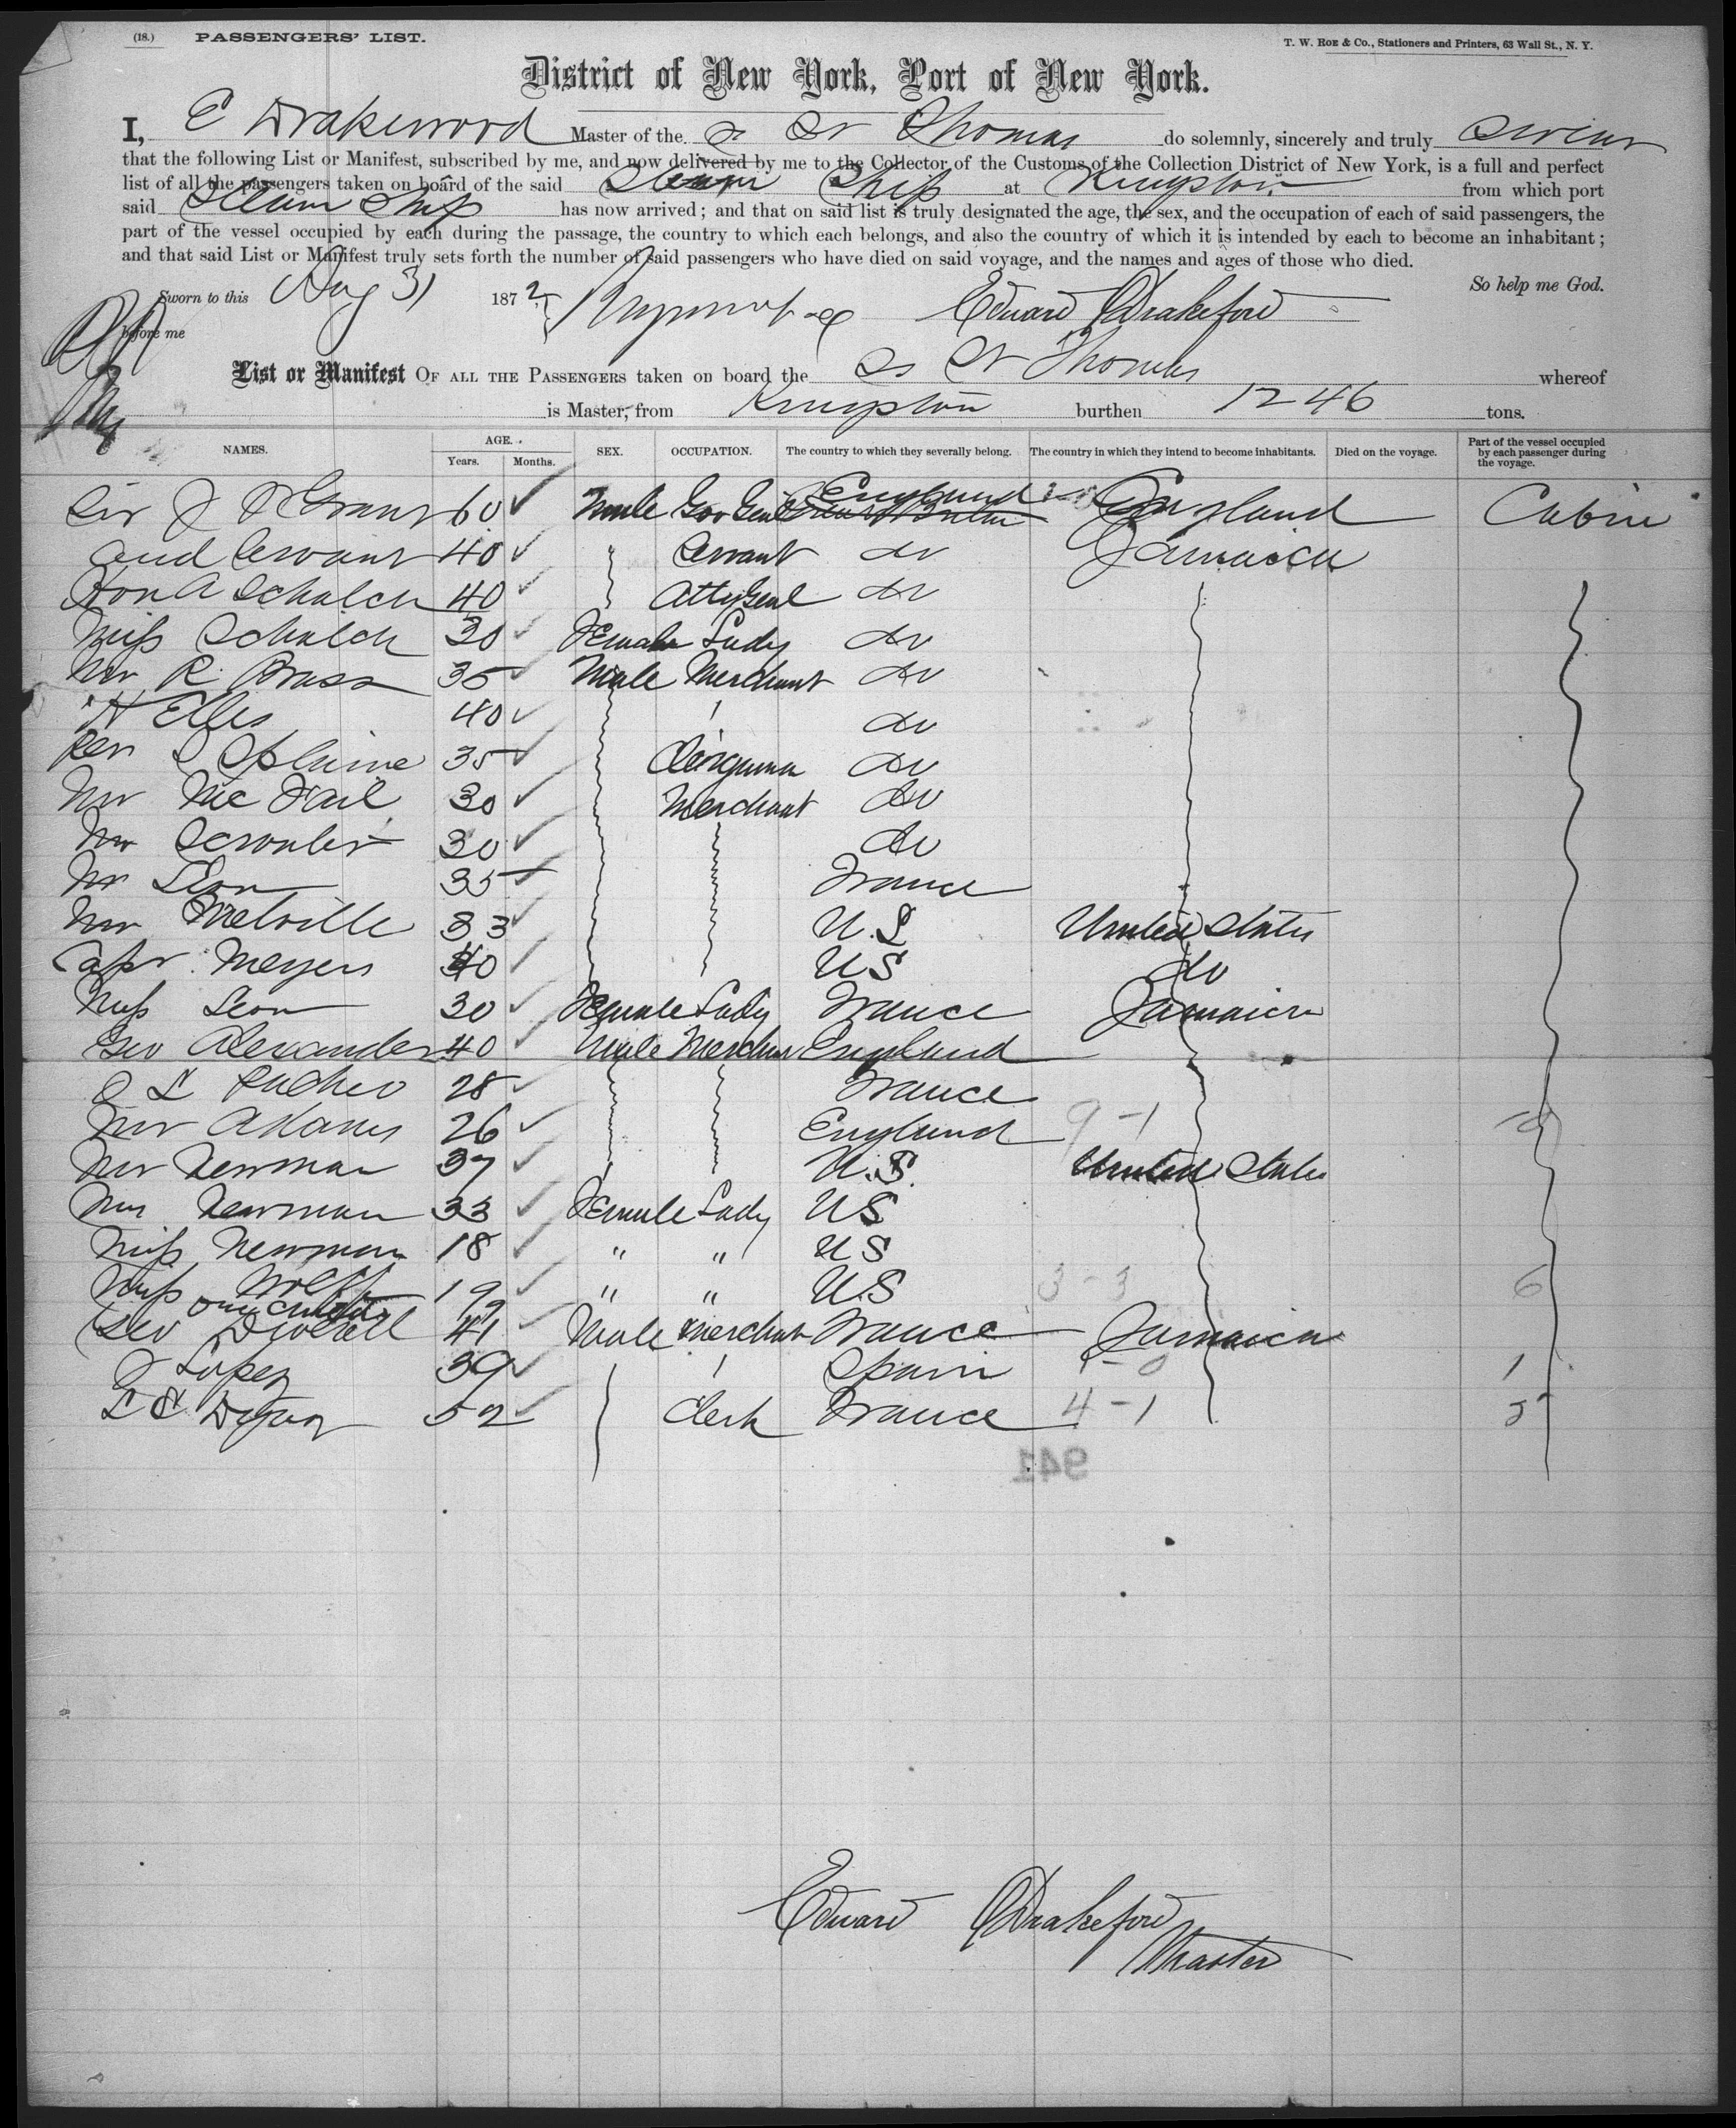 (18.) PASSENGERS' LIST. T. W. ROE & Co., Stationers and Printers, 63 Wall St., N. Y.
District of New York, Port of New York.
I, E Drakewood Master of the S St Thomas do solemnly, sincerely and truly Swear
that the following List or Manifest, subscribed by me, and now delivered by me to the Collector of the Customs of the Collection District of New York, is a full and perfect
list of all the passengers taken on board of the said Steam Ship at Kingston from which port
said Steam Ship has now arrived; and that on said list is truly designated the age, the sex, and the occupation of each of said passengers, the
part of the vessel occupied by each during the passage, the country to which each belongs, and also the country of which it is intended by each to become an inhabitant;
and that said List or Manifest truly sets forth the number of said passengers who have died on said voyage, and the names and ages of those who died.
So help me God.
Sworn to this Aug 31 1872 Edward Drakeford
before me
List or Manifest OF ALL THE PASSENGERS taken on board the Ss St Thomas whereof
is Master, from Kingston burthen 1246 tons.
NAMES. AGE. Years. Months. SEX. OCCUPATION. The country to which they severally belong. The country in which they intend to become inhabitants. Died on the voyage. Part of the vessel occupied by each passenger during the voyage.
Sir J P Grant 60 Male Gov Genl England England Cabin
and Servant 40 Servant do Jamaica
Hon A Schalch 40 Atty Genl do
Miss Schalch 30 Female Lady do
Mr R. Brass 35 Male Merchant do
" H Elles 40 do
Rev S Splaine 35 Clergyman do
Mr McFail 30 Merchant do
Mr 30 do
Mr Leon 35 France
Mr Melville 33 U.S United States
Capt. Meyers 40 US do
Miss Leon 30 Female Lady France Jamaica
Geo Alexander 40 Male Merchan England
28 France
Mr Adams 26 England 9-1
Mr Newman 37 U.S. United States
Mrs Newman 33 Female Lady US
Miss Newman 18 " " US
Miss Wolff 19 " " U.S 3-3 6
Geo 41 Male Merchan France Jamaica
J Lopez 39 Spain 1-0 1
L C 52 Clerk France 4-1 5
941
Edward Drakeford
Master